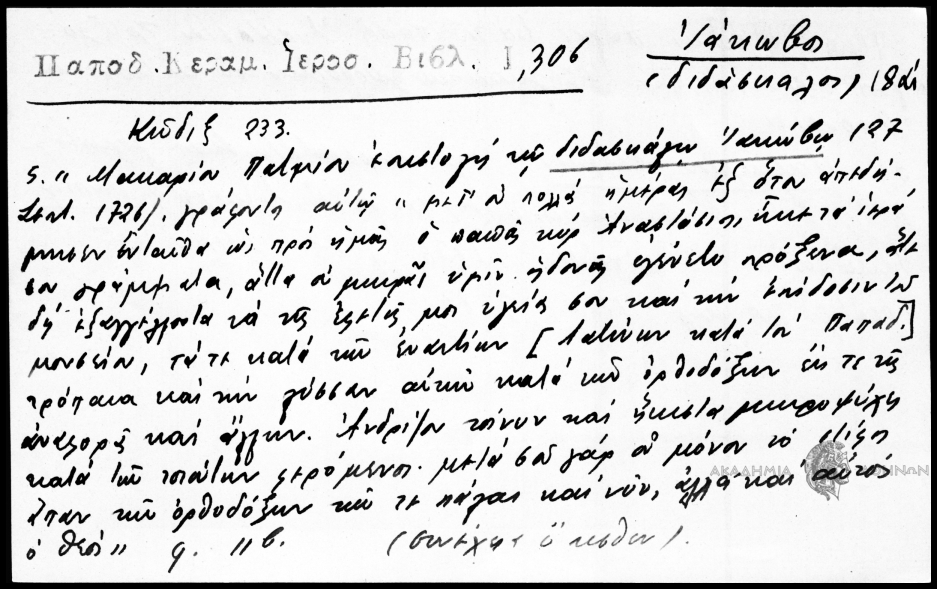 Παποδ. Κεραμ. Ἱεροσ. Βιβλ. 1, 306
Ἰάκωβος
(διδάσκαλος) 18 αἰ
Κῶδιξ 233.
5. " Μακαρίου Πατμίου ἐπιστολὴ τῷ διδασκάλῳ Ἰακώβῳ 127
1726). γράφοντος αὐτῷ " μετ' οὐ πολλὰς ἡμέρας ἐξ ὅτου ἀπεδή-
μησεν ἐνταῦθα ὡς πρὸς ἡμᾶς ὁ παπᾶς κὺρ Ἀναστάσιος, ἧκε τὰ ἱερά
σου γράμματα, ἅττα οὐ μικρᾶς ὑμῖν ἡδονῆς ἐγένετο πρόξενα, ἅτε
δὴ ἐξαγγέλλοντα τὰ τῆς ἐφετῆς μοι ὑγείας σου καὶ τὴν ἐπίδοσιν τοῦ
μουσείου, τά τε κατὰ τῶν ἐναντίων [Λατίνων κατὰ τὸν Παπαδ.]
τρόπαια καὶ τὴν λύσσαν αὐτῶν κατὰ τῶν ὀρθοδόξων ἔκ τε τῆς
ἀναφορᾶς καὶ ἄλλων. Ἀνδρίζου τοίνυν καὶ ἥκιστα μικροψύχει
κατὰ τῶν τοιούτων φερόμενος. μετὰ σοῦ γὰρ οὐ μόνον τὸ στῖφος
ἅπαν τῶν ὀρθοδόξων τῶν τε πάλαι καὶ νῦν, ἀλλὰ καὶ αὐτὸς
ὁ Θεός" φ. 11β. (συνέχεια ὄπισθεν).
ΑΚΑΔΗΜΙΑ ΑΘΗΝΩΝ